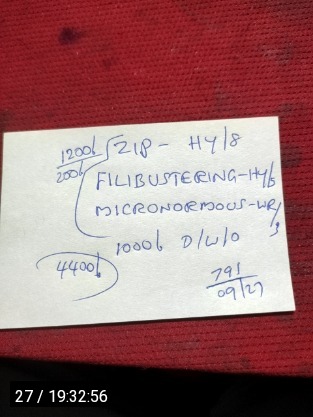 1200/ ZIP - HY/8
200/
FILIBUSTERING-HY/6
MICRONORMOUS-WR/
3
1000/ D/W/O
4400/
791
09/27
27 / 19:32:56